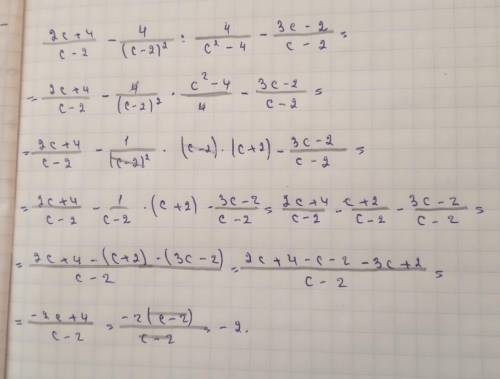 (2c+4)/(c-2) - 4/(c-2)² : 4/(c²-4) - (3c-2)/(c-2) =
= (2c+4)/(c-2) - 4/(c-2)² · (c²-4)/4 - (3c-2)/(c-2) =
= (2c+4)/(c-2) - 1/(c-2)² · (c-2)·(c+2) - (3c-2)/(c-2) =
= (2c+4)/(c-2) - 1/(c-2) · (c+2) - (3c-2)/(c-2) = (2c+4)/(c-2) - (c+2)/(c-2) - (3c-2)/(c-2) =
= (2c+4-(c+2)-(3c-2))/(c-2) = (2c+4-c-2-3c+2)/(c-2) =
= (-2c+4)/(c-2) = (-2(c-2))/(c-2) = -2.